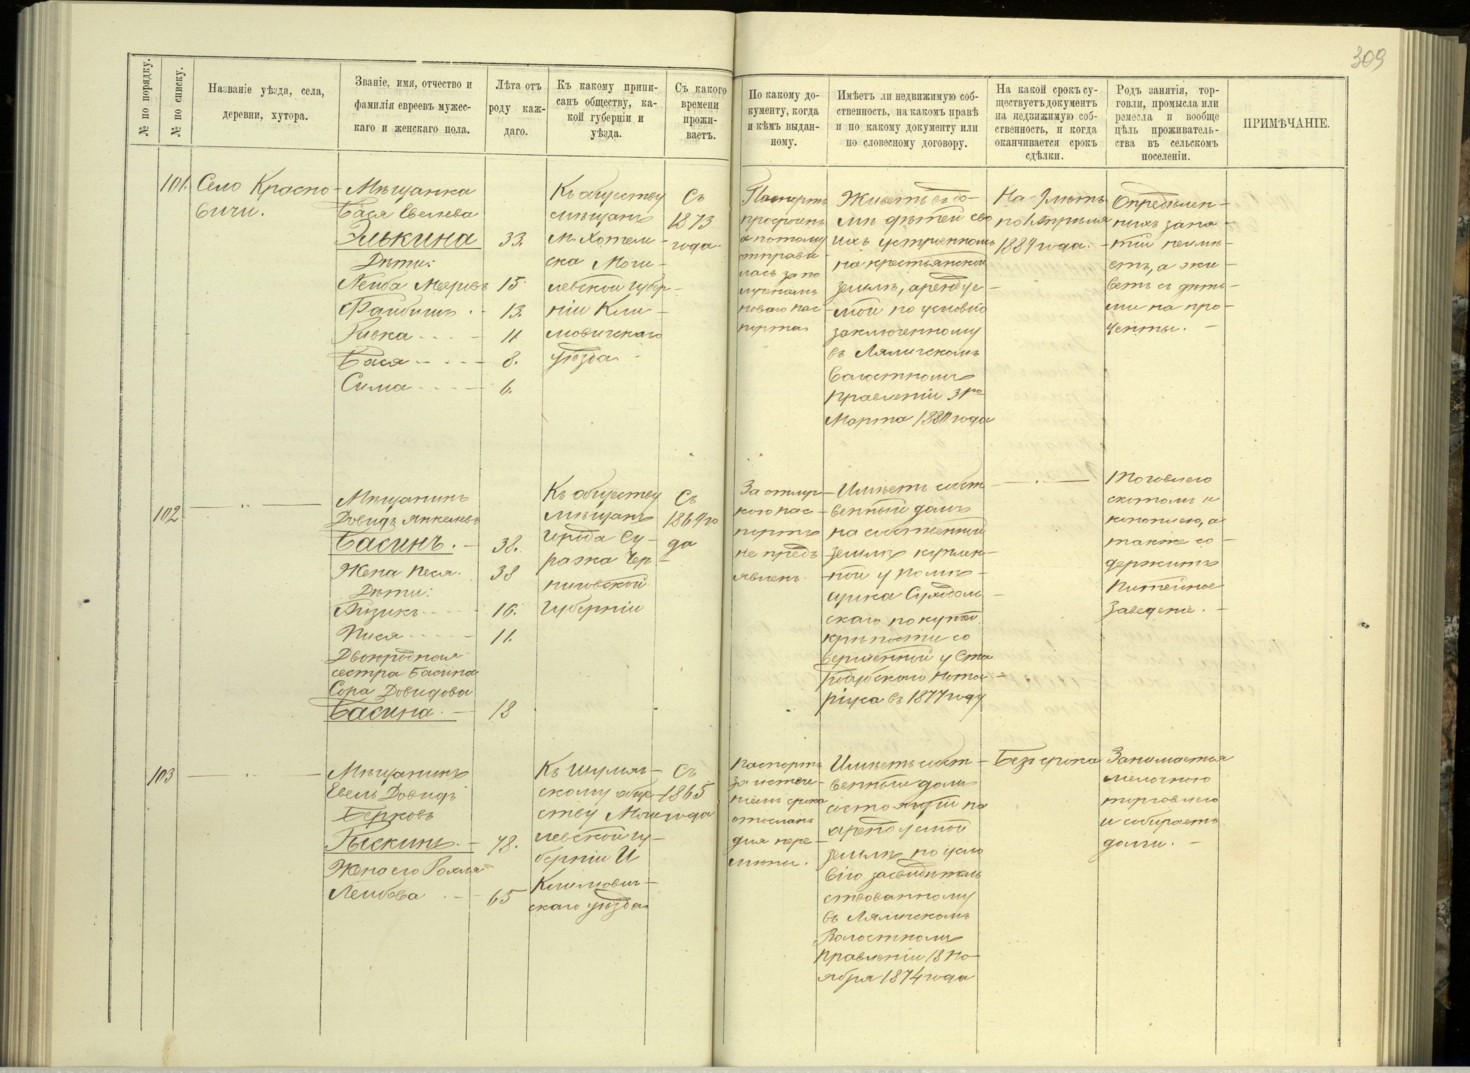 309
№ по порядку.
№ по списку.
Названіе уѣзда, села,
деревни, хутора.
Званіе, имя, отчество и
фамилія евреевъ мужес-
каго и женскаго пола.
Лѣта отъ
роду каж-
даго.
Къ какому припи-
санъ обществу, ка-
кой губерніи и
уѣзда.
Съ какого
времени
прожи-
ваетъ.
По какому до-
кументу, когда
и кѣмъ выдан-
ному.
Имѣетъ ли недвижимую соб-
ственность, на какомъ правѣ
и по какому документу или
по словесному договору.
На какой срокъ су-
ществуетъ документъ
на недвижимую соб-
ственность, и когда
оканчивается срокъ
сдѣлки.
Родъ занятія, тор-
говли, промысла или
ремесла и вообще
цѣль проживатель-
ства въ сельскомъ
поселеніи.
ПРИМѢЧАНІЕ.
101.
Село Краспо-
бичи.
Мѣщанка
Бася Евелева
Элькина
Дѣти:
Лейба Мееровъ
Файбишъ
Ривка
Бася
Сима
33.
15.
13.
11.
8.
6.
Къ обществу
мѣщанъ
м. Хотем-
ска Моги-
левской губер-
ніи Кли-
мовичскаго
уѣзда
Съ
1873
года
Паспортъ
просроченъ
а потому
отправи-
лась за по
лученіемъ
новаго пас-
порта
Живетъ въ до-
мѣ дѣтей сво
ихъ устроенномъ
на крестьянской
землѣ, арендуе-
мой по условію
заключенному
въ Ляличскомъ
Волостномъ
Правленіи 31го
Марта 1881 года
На 3 лѣтъ
по 1 Апрѣля
1884 года.
Опредѣлен-
ныхъ заня-
тій неимѣ-
етъ, а жи-
ветъ съ дѣть-
ми на про-
центы.
102
Мѣщанинъ
Довидъ Янкелевъ
Басинъ.
Жена Песя.
Дѣти:
Айзикъ
Песя
Двоюродная
сестра Басина
Сора Довидова
Басина.
38.
38
16.
11.
18
Къ обществу
мѣщанъ
города Су-
ража Чер-
ниговской
Губерніи
Съ
1864 го
да
За отлуч-
кою пас-
портъ
не предъ-
явленъ
Имѣетъ собст-
венный домъ
на собственной
землѣ куплен-
ной у помѣ-
щика
скаго по купчей
крѣпости со
вершенной у Ста
родубскаго Нота-
ріуса въ 1877 году
Торговлею
скотомъ и
коноплею, а
также со-
держитъ
Питейное
Заведеніе.
103
Мѣщанинъ
Евель Довидъ
Берковъ
Пыскинъ.
Жена его Рохля
Лейбова
78.
65
Къ Шумяч-
скому обще-
ству Моги-
левской гу-
берніи И
Климович-
скаго уѣзда
Съ
1865
года
Паспортъ
за истече-
ніемъ срока
отосланъ
для пере-
мѣны.
Имѣетъ собст-
венный домъ
состоящій на
арендуемой
землѣ по усло
вію засвидѣтель
ствованному
въ Ляличскомъ
Волостномъ
Правленіи 18 Но-
ября 1874 года
Безъ срока
Занимается
мелочною
торговлею
и собираетъ
долги.